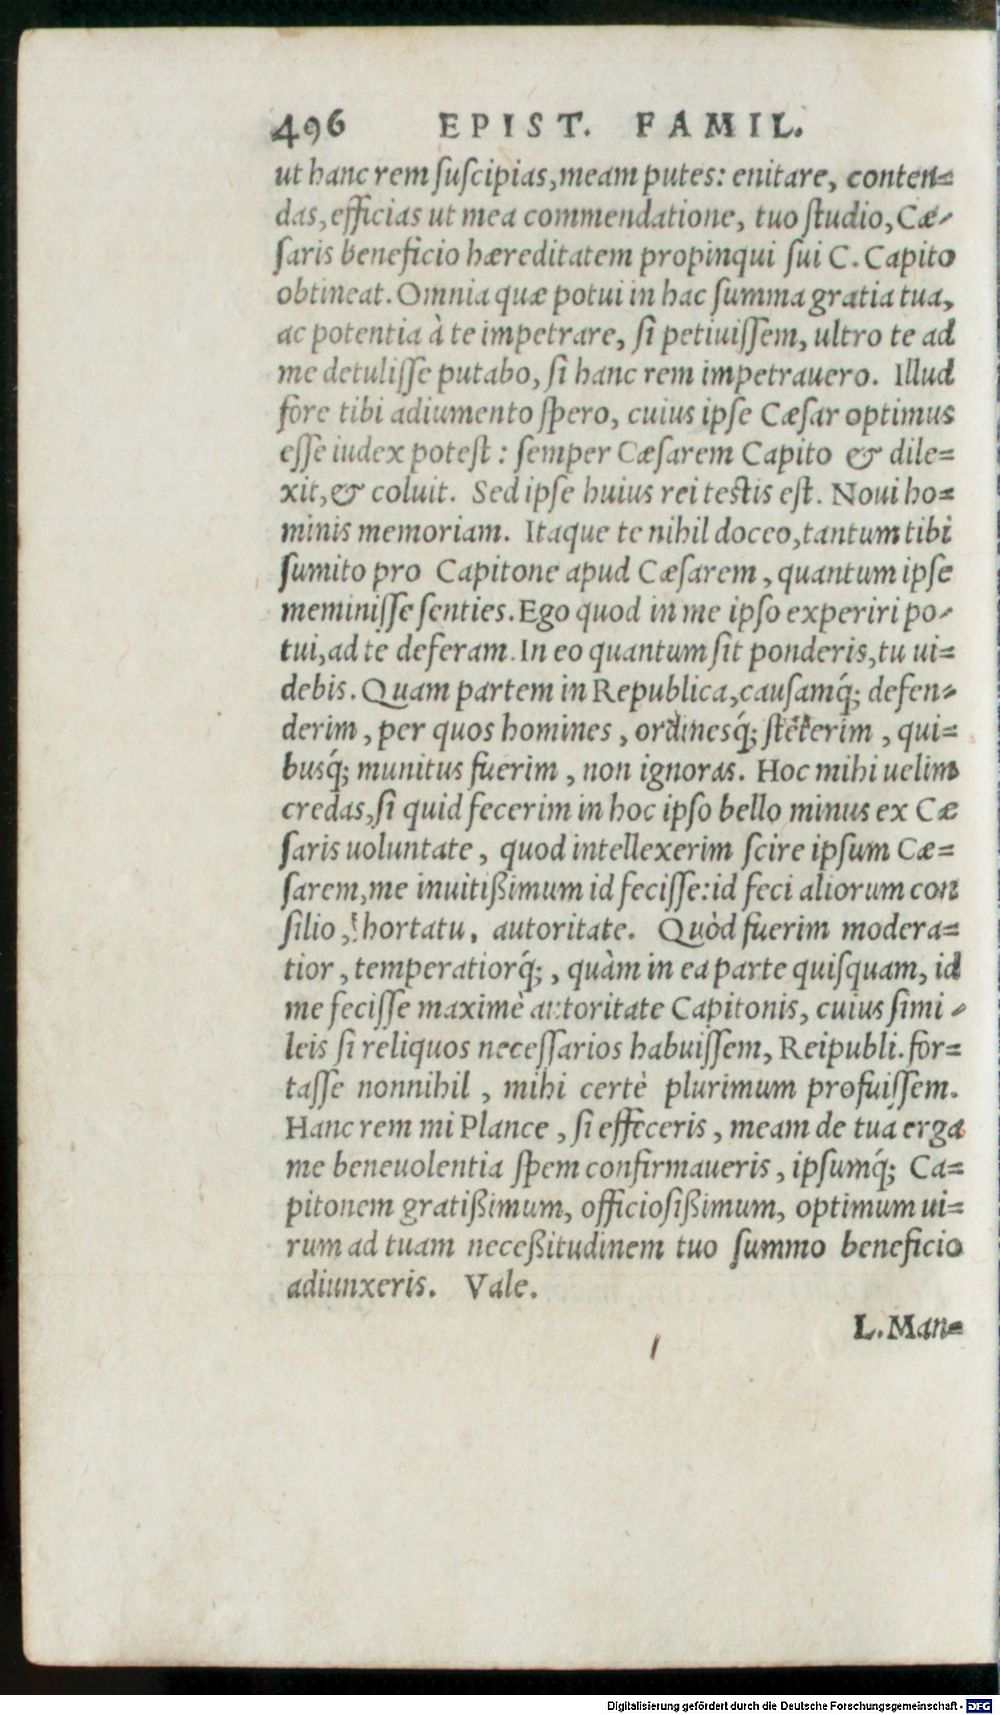 496 EPIST. FAMIL.
ut hanc rem ſuſcipias, meam putes: enitare, conten=
das, efficias ut mea commendatione, tuo ſtudio, Cæ-
ſaris beneficio hæreditatem propinqui ſui C. Capito
obtineat. Omnia quæ potui in hac ſumma gratia tua,
ac potentia à te impetrare, ſi petiuiſſem, ultro te ad
me detuliſſe putabo, ſi hanc rem impetrauero. Illud
fore tibi adiumento ſpero, cuius ipſe Cæſar optimus
eſſe iudex poteſt: ſemper Cæſarem Capito & dile=
xit, & coluit. Sed ipſe huius rei teſtis eſt. Noui ho=
minis memoriam. Itaque te nihil doceo, tantum tibi
ſumito pro Capitone apud Cæſarem, quantum ipſe
meminiſſe ſenties. Ego quod in me ipſo experiri po-
tui, ad te deferam. In eo quantum ſit ponderis, tu ui=
debis. Quam partem in Republica, cauſamq́; defen-
derim, per quos homines, ordinesq́; ſteterim, qui=
busq́; munitus fuerim, non ignoras. Hoc mihi uelim
credas, ſi quid fecerim in hoc ipſo bello minus ex Cæ
ſaris uoluntate, quod intellexerim ſcire ipſum Cæ=
ſarem, me inuitißimum id feciſſe: id feci aliorum con
ſilio, hortatu, autoritate. Quòd fuerim modera=
tior, temperatiorq́;, quàm in ea parte quiſquam, id
me feciſſe maximè autoritate Capitonis, cuius ſimi-
leis ſi reliquos neceſſarios habuiſſem, Reipubli. for=
taſſe nonnihil, mihi certè plurimum profuiſſem.
Hanc rem mi Plance, ſi effeceris, meam de tua erga
me beneuolentia ſpem confirmaueris, ipſumq́; Ca=
pitonem gratißimum, officioſißimum, optimum ui=
rum ad tuam neceßitudinem tuo ſummo beneficio
adiunxeris. Vale.
L. Man=
Digitalisierung gefördert durch die Deutsche Forschungsgemeinschaft - DFG